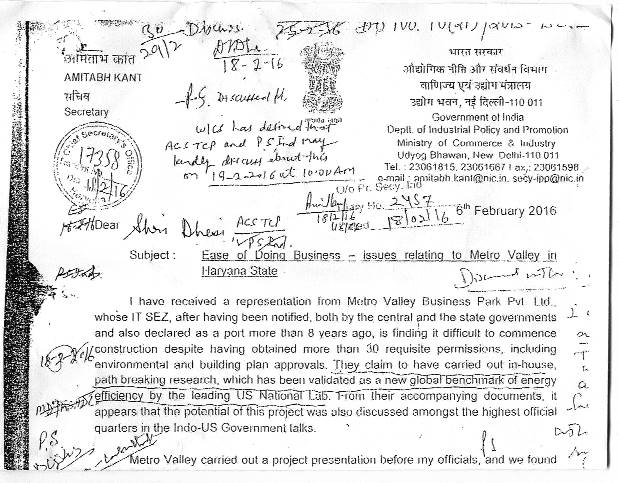 Discuss
29/2
25-2-16
18-2-16
अमिताभ कांत
AMITABH KANT
सचिव
Secretary
भारत सरकार
औद्योगिक नीति और संवर्धन विभाग
वाणिज्य एवं उद्योग मंत्रालय
उद्योग भवन, नई दिल्ली-110 011
Government of India
Deptt. of Industrial Policy and Promotion
Ministry of Commerce & Industry
Udyog Bhawan, New Delhi-110 011
Tel. : 23061815, 23061667
e-mail : amitabh.kant@nic.in, secy-ipp@nic.in
Discussed
W/CS has desired that
ACS TCP and PS Ind may
kindly discuss about this
on 19-2-2016 at 10:00 AM
Chief Secretary's Office
17358
18/2/16
O/o Pr. Secy. Ind
Diary No. 2457
18/2/16
18/02/16
6th February 2016
18-2-16
Dear Shri Dhesi
ACS TCP
Subject : Ease of Doing Business – issues relating to Metro Valley in
Haryana State
I have received a representation from Metro Valley Business Park Pvt. Ltd.,
whose IT SEZ, after having been notified, both by the central and the state governments
and also declared as a port more than 8 years ago, is finding it difficult to commence
18-2-2016
construction despite having obtained more than 30 requisite permissions, including
environmental and building plan approvals. They claim to have carried out in-house,
path breaking research, which has been validated as a new global benchmark of energy
efficiency by the leading US National Lab. From their accompanying documents, it
appears that the potential of this project was also discussed amongst the highest official
quarters in the Indo-US Government talks.
PS
Metro Valley carried out a project presentation before my officials, and we found